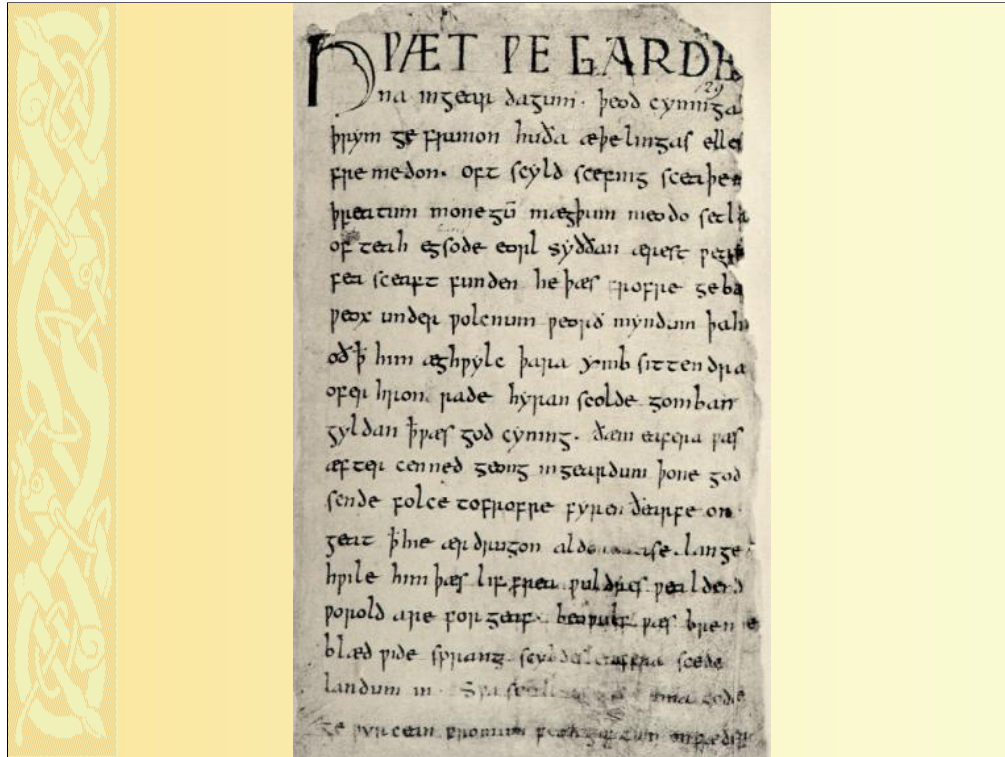 HǷÆT ǷE GARDE
129
na ingear dagum. þeod cyninga
þrym ge frunon huða æþelingas elle
fre medon. oft scyld scefing sceaþe
þreatum monegū mægþum meodo setla
of teah egsode eorl syððan ærest ƿear
fea sceaft funden he þæs frofre geba
ƿeox under ƿolcnum ƿeorð myndum þah
oð ꝥ him æghƿylc þara ymb sittendra
ofer hron rade hyran scolde gomban
gyldan ꝥ ƿæs god cyning. ðæm eafera ƿæs
æfter cenned geong ingeardum þone god
sende folce tofrofre fyren ðearfe on
geat ꝥ hie ær drugon lange
hƿile him þæs lif frea ƿuldres ƿealdend
ƿorold are for geaf. beoƿulf ƿæs breme
blæd ƿide sprang scyldes eafera scede
landum in. Sƿa gode
ge ƿyrcean fromum